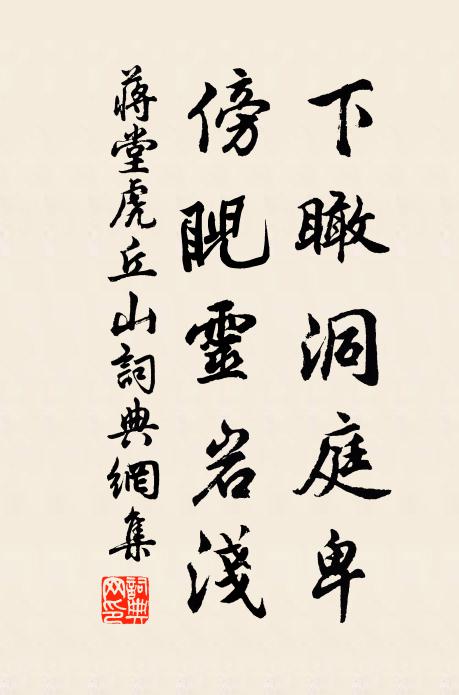 下瞰洞庭卑
傍睨靈岩淺
蔣堂虎丘山詞典網集
詞典網印